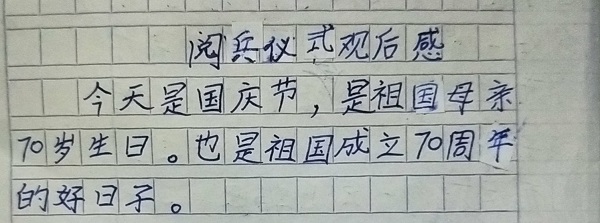 阅兵仪式观后感
今天是国庆节，是祖国母亲
70岁生日。也是祖国成立70周年
的好日子。